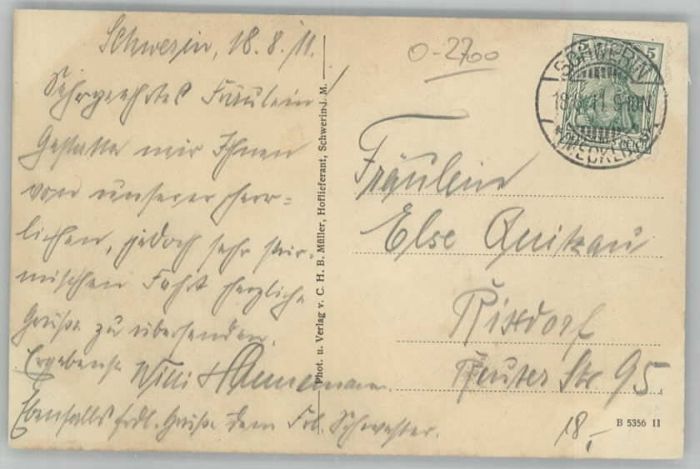 Schwerin, 18.8.11.
Sehrgeehrtes Fräulein!
Gestatten mir Ihnen
von unserer herr-
lichen, jedoch sehr stür-
mischen Fahrt herzliche
Grüße zu übersenden.
Ergebenst Willi
Ebenfalls frdl. Grüße dem Frl. Schwester.
Phot. u. Verlag v. C. H. B. Müller, Hoflieferant, Schwerin J. M.
0-2700
5
SCHWERIN
18.8.11.9-10N
(MECKLENB.)
Fräulein
Else Quitzau
Rixdorf
Reuter Str 95
18,-
B 5356 II